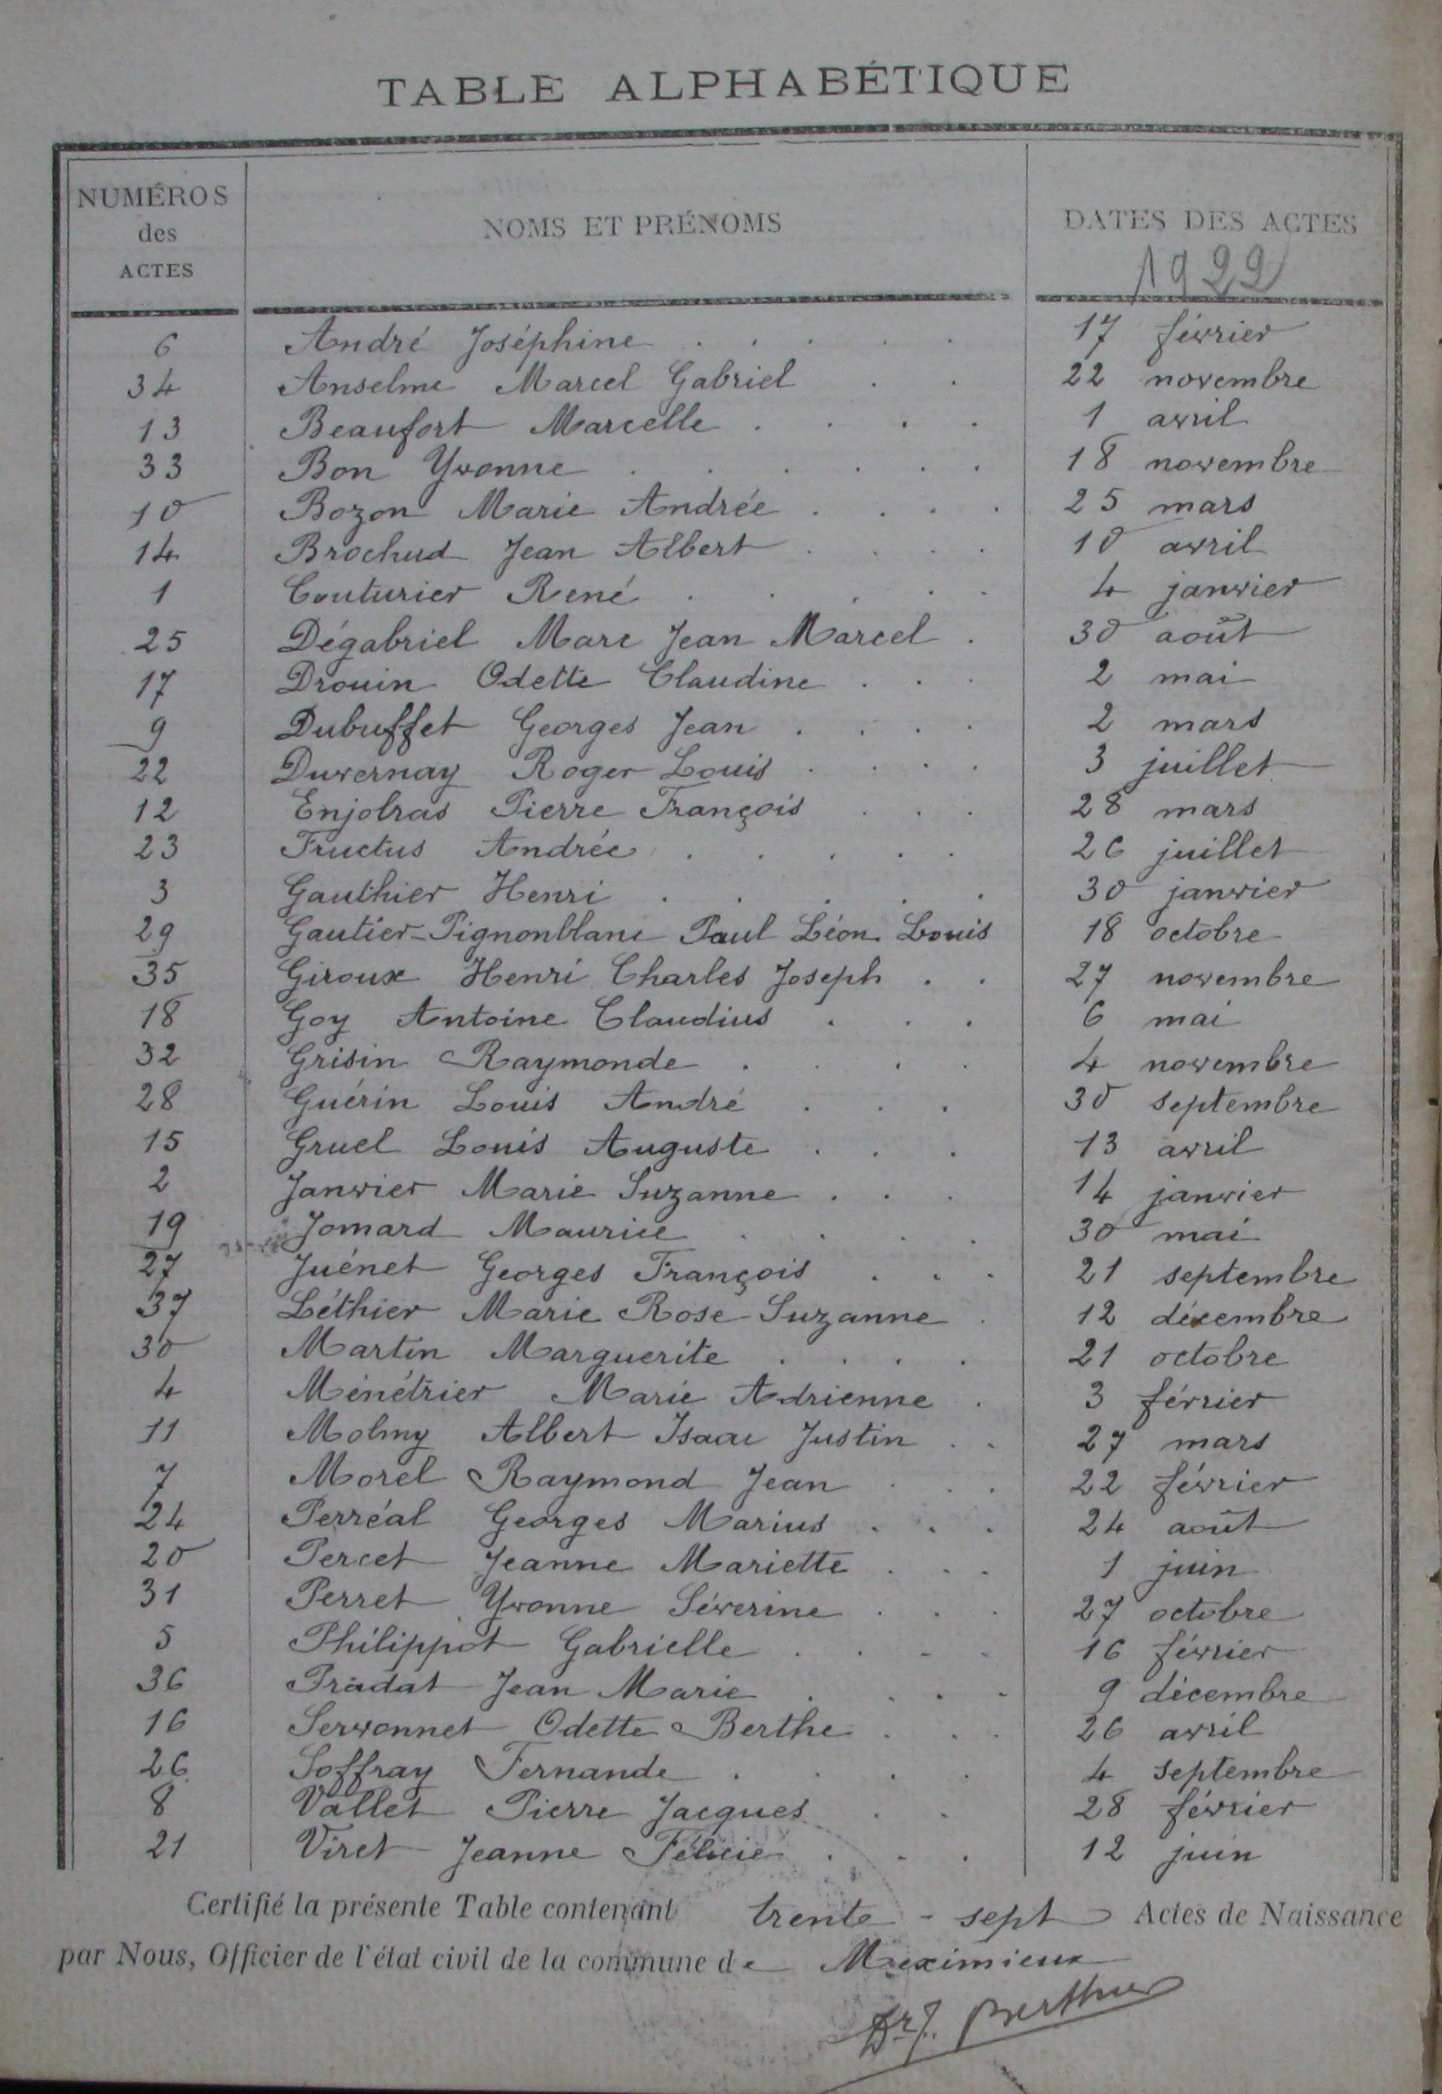 TABLE ALPHABÉTIQUE
NUMÉROS des ACTES NOMS ET PRÉNOMS DATES DES ACTES
1922
6 André Joséphine . . . . . 17 février
34 Anselme Marcel Gabriel . . 22 novembre
13 Beaufort Marcelle . . . . 1 avril
33 Bon Yvonne . . . . . 18 novembre
10 Bozon Marie Andrée . . . . 25 mars
14 Brochud Jean Albert . . . . 10 avril
1 Couturier René . . . . . 4 janvier
25 Dégabriel Marc Jean Marcel . 30 août
17 Drouin Odette Claudine . . . 2 mai
9 Dubuffet Georges Jean . . . . 2 mars
22 Duvernay Roger Louis . . . . 3 juillet
12 Enjolras Pierre François . . . 28 mars
23 Fructus Andrée . . . . . 26 juillet
3 Gauthier Henri . . . . . 30 janvier
29 Gautier-Pignonblanc Paul Léon Louis 18 octobre
35 Giroux Henri Charles Joseph . . 27 novembre
18 Goy Antoine Claudius . . . 6 mai
32 Grisin Raymonde . . . . 4 novembre
28 Guérin Louis André . . . 30 septembre
15 Gruel Louis Auguste . . . 13 avril
2 Janvier Marie Suzanne . . . 14 janvier
19 Jomard Maurice . . . . 30 mai
27 Juénet Georges François . . . 21 septembre
37 Léthier Marie Rose Suzanne . 12 décembre
30 Martin Marguerite . . . . 21 octobre
4 Ménétrier Marie Adrienne . 3 février
11 Molmy Albert Isaac Justin . . 27 mars
7 Morel Raymond Jean . . . 22 février
24 Perréal Georges Marius . . . 24 août
20 Percet Jeanne Mariette . . . 1 juin
31 Perret Yvonne Séverine . . . 27 octobre
5 Philippot Gabrielle . . . . 16 février
36 Pradat Jean Marie . . . . 9 décembre
16 Servonnet Odette Berthe . . . 26 avril
26 Soffray Fernande . . . . 4 septembre
8 Vallet Pierre Jacques . . 28 février
21 Viret Jeanne Félicie . . . 12 juin
Certifié la présente Table contenant trente-sept Actes de Naissance
par Nous, Officier de l'état civil de la commune de Meximieux
Dr J. Berthier